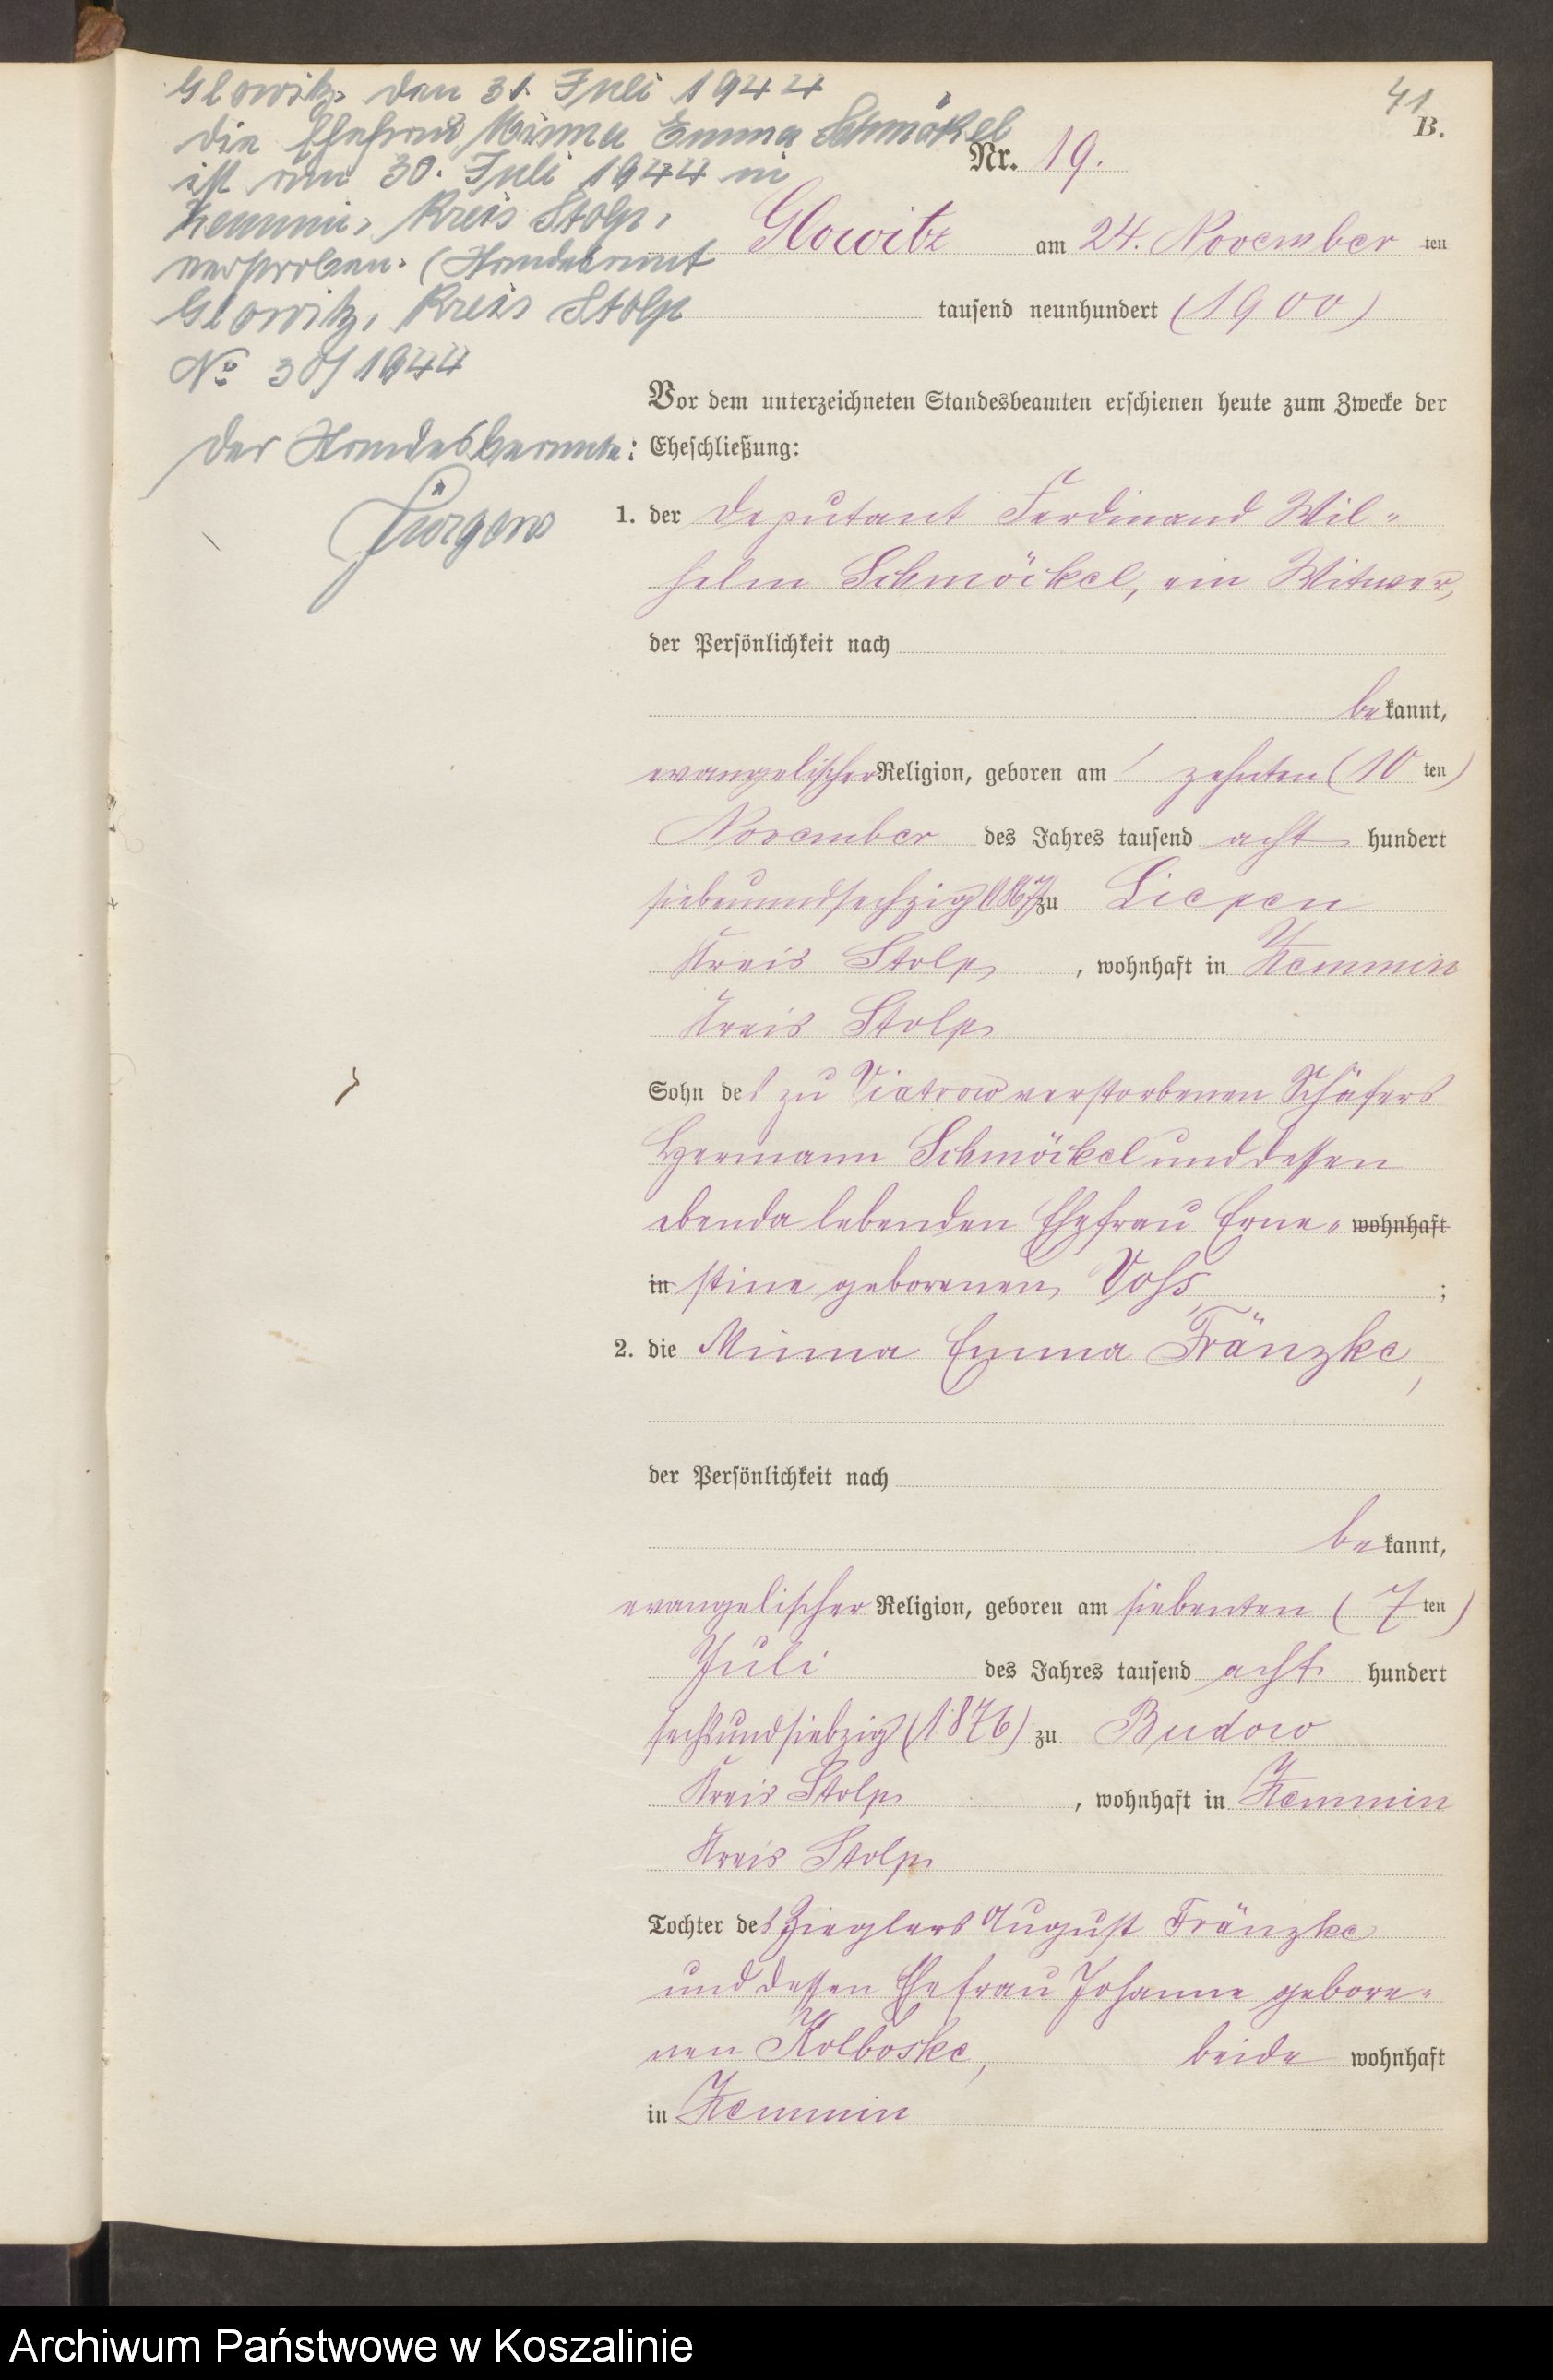 Glowitz, den 31. Juli 1944
Die Ehefrau Minna Emma Schmökel
ist am 30. Juli 1944 in
Zemmin, Kreis Stolp,
verstorben. (Standesamt
Glowitz, Kreis Stolp
No 30/1944
Der Standesbeamte:
Jürgens
41
B.
Nr. 19.
Glowitz am 24. November ten
tausend neunhundert (1900)
Vor dem unterzeichneten Standesbeamten erschienen heute zum Zwecke der
Eheschließung:
1. der Deputant Ferdinand Wil-
helm Schmöckel, ein Witwer,
der Persönlichkeit nach
bekannt,
evangelischer Religion, geboren am zehnten (10 ten)
November des Jahres tausend acht hundert
siebenundsechzig (1867) zu Liepen
Kreis Stolp, wohnhaft in Zemmin
Kreis Stolp
Sohn des zu Viatrow verstorbenen Schäfers
Hermann Schmöckel und dessen
ebenda lebenden Ehefrau Erne- wohnhaft
in stine geborenen Voß ;
2. die Minna Emma Fränzke,
der Persönlichkeit nach
bekannt,
evangelischer Religion, geboren am siebenten (7 ten)
Juli des Jahres tausend acht hundert
sechsundsiebzig (1876) zu Budow
Kreis Stolp, wohnhaft in Zemmin
Kreis Stolp
Tochter des Zieglers August Fränzke
und dessen Ehefrau Johanne gebore-
nen Kolboske, beide wohnhaft
in Zemmin
Archiwum Państwowe w Koszalinie